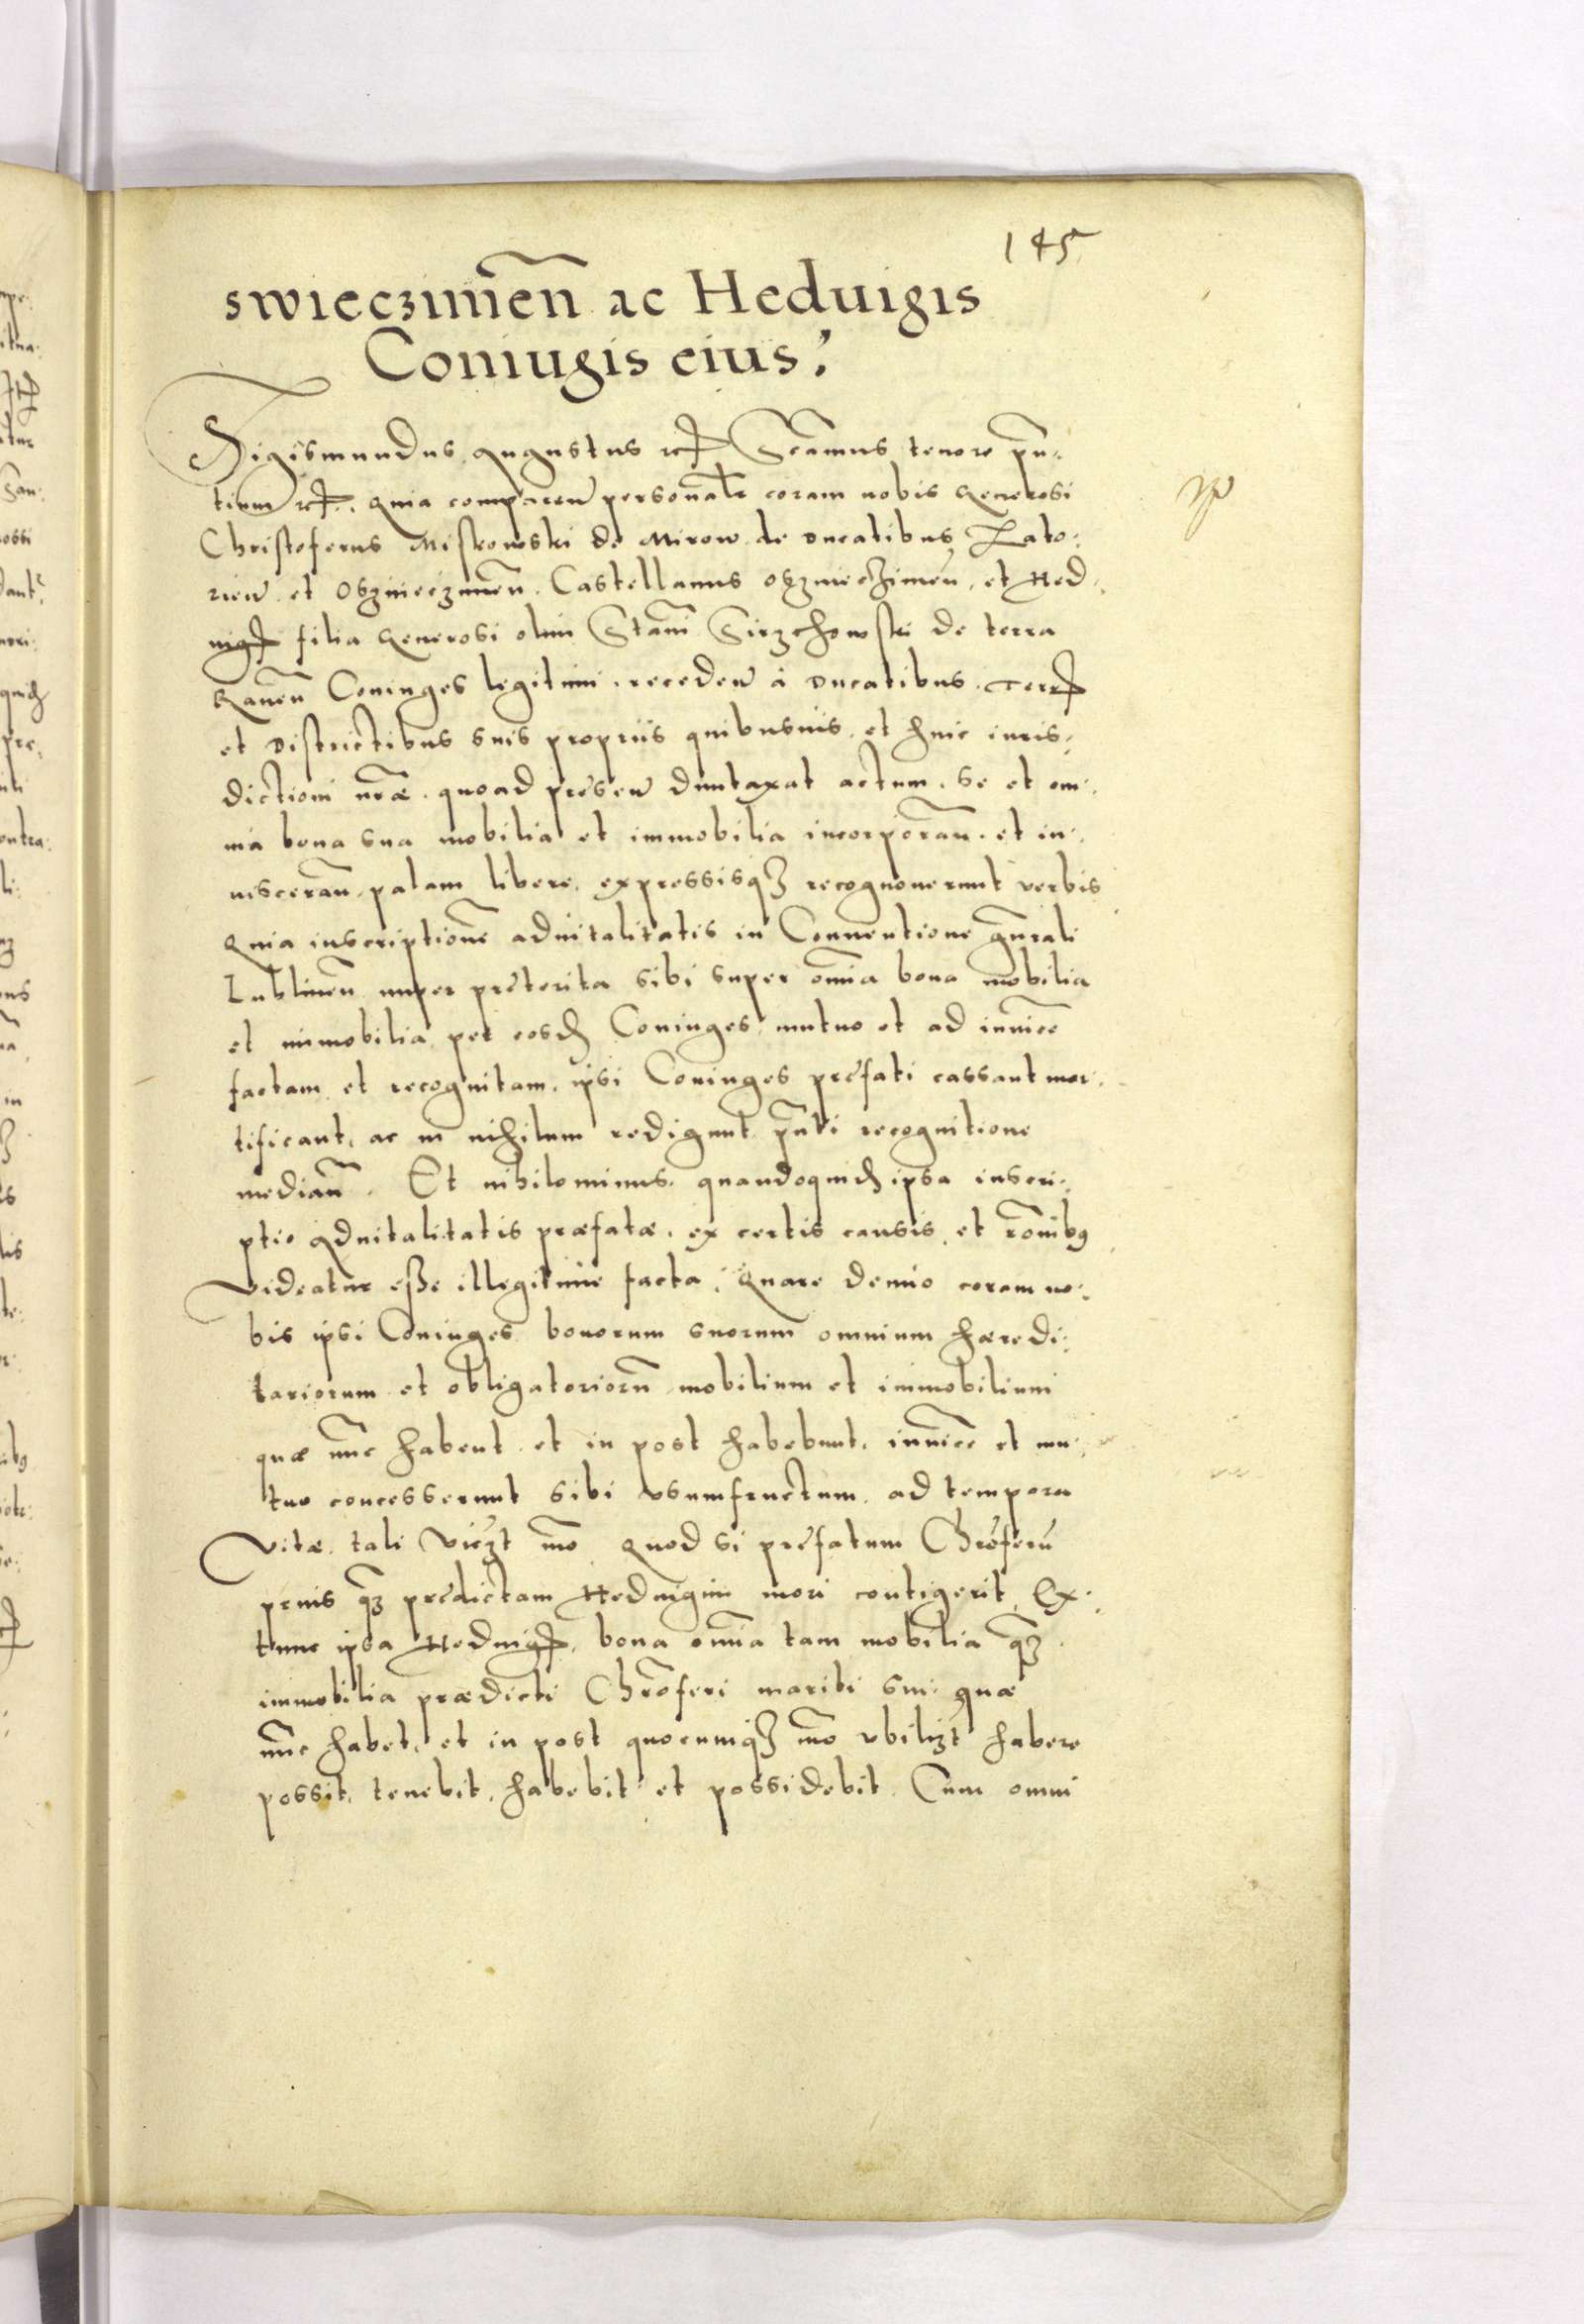 145
swieczimen̄ ac Heduigis
Coniugis eius.
Sigismundus Augustus etc Sẽamus tenore pñ-
tium etc. Quia comparen personalr coram nobis Generosi
Christoferus Miskowski de Mirow de Ducatibus Zato-
rien et Oszwieczimen̄. Castellanus Oszwieczimen̄. et Hed-
uigis filia Generosi olim Stanĩ Sirzchowski de terra
Rauen̄ Coniuges legitimi. receden à Ducatibus. Terris
et Districtibus suis propriis quibusuis. et huic iuris-
dictioni nr̃æ. quoad presen duntaxat actum. se et om-
nia bona sua mobilia et immobilia incorporan̄. et in-
uisceran̄. palam libere. expressisq3 recognouerunt verbis
Quia inscriptionẽ aduitalitatis in Conuentione gñrali
Lublinen̄ nuper preterita sibi super om̃ia bona mobilia
et immobilia per eosd Coniuges mutuo et ad inuicẽ
factam et recognitam. ipsi Coniuges prefati cassant mor-
tificant. ac in nihilum redigunt pñti recognitione
median̄. Et nihilominus. quandoquid ipsa inscri-
ptio Aduitalitatis præfatæ. ex certis causis et rõnib9
Videatur eße illegitime facta. Quare denuo coram no-
bis ipsi Coniuges bonorum suorum omnium hæredi-
tariorum et obligatoriorũ mobilium et immobilium
quæ nũc habent et in post habebunt. inuicẽ et mu-
tuo concesserunt sibi vsumfructum. ad tempora
Vitæ. tali viczt mõ Quod si prefatum Chrõferũ
prius q̃3 predictam Heduigim mori contigerit, Ex-
tunc ipsa Heduigis, bona om̃ia tam mobilia q̃3
immobilia prædicti Chrõferi mariti sui quæ
nũc habet, et in post quocumq3 mõ vbilizt habere
possit, tenebit, habebit et possidebit. Cum omni